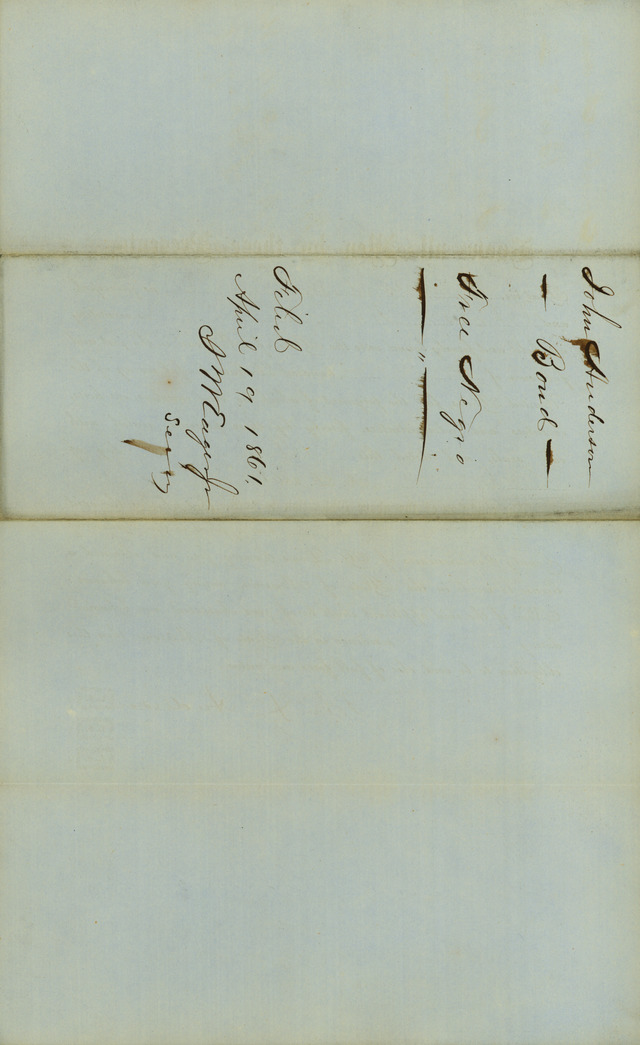 John Anderson
— Bond —
Free Negro
Filed
April 19 1861.